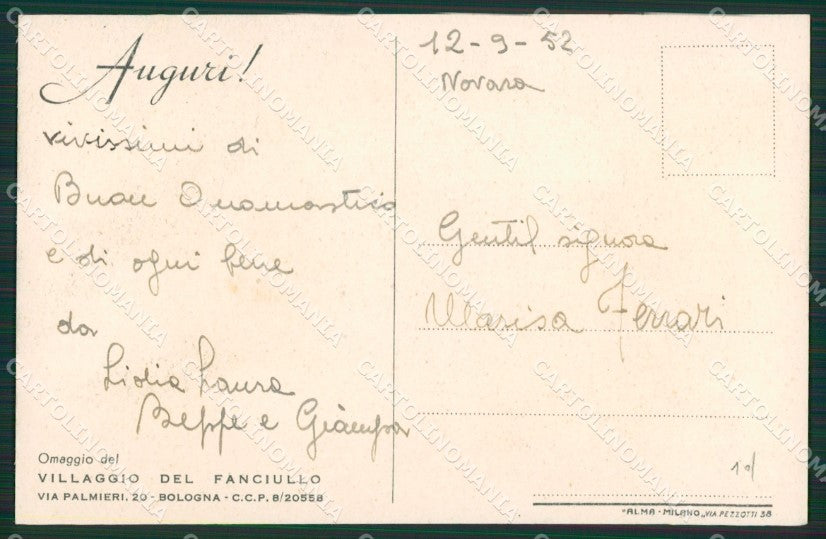 Auguri!
vivissimi di
Buon Onomastico
e di ogni bene
da
Lidia Laura
Beppe e Giampa
Omaggio del
VILLAGGIO DEL FANCIULLO
VIA PALMIERI, 20 - BOLOGNA - C.C.P. 8/20558
12-9-52
Novara
Gentil signora
Marisa Ferrari
"ALMA - MILANO „VIA PEZZOTTI 38
CARTOLINOMANIA